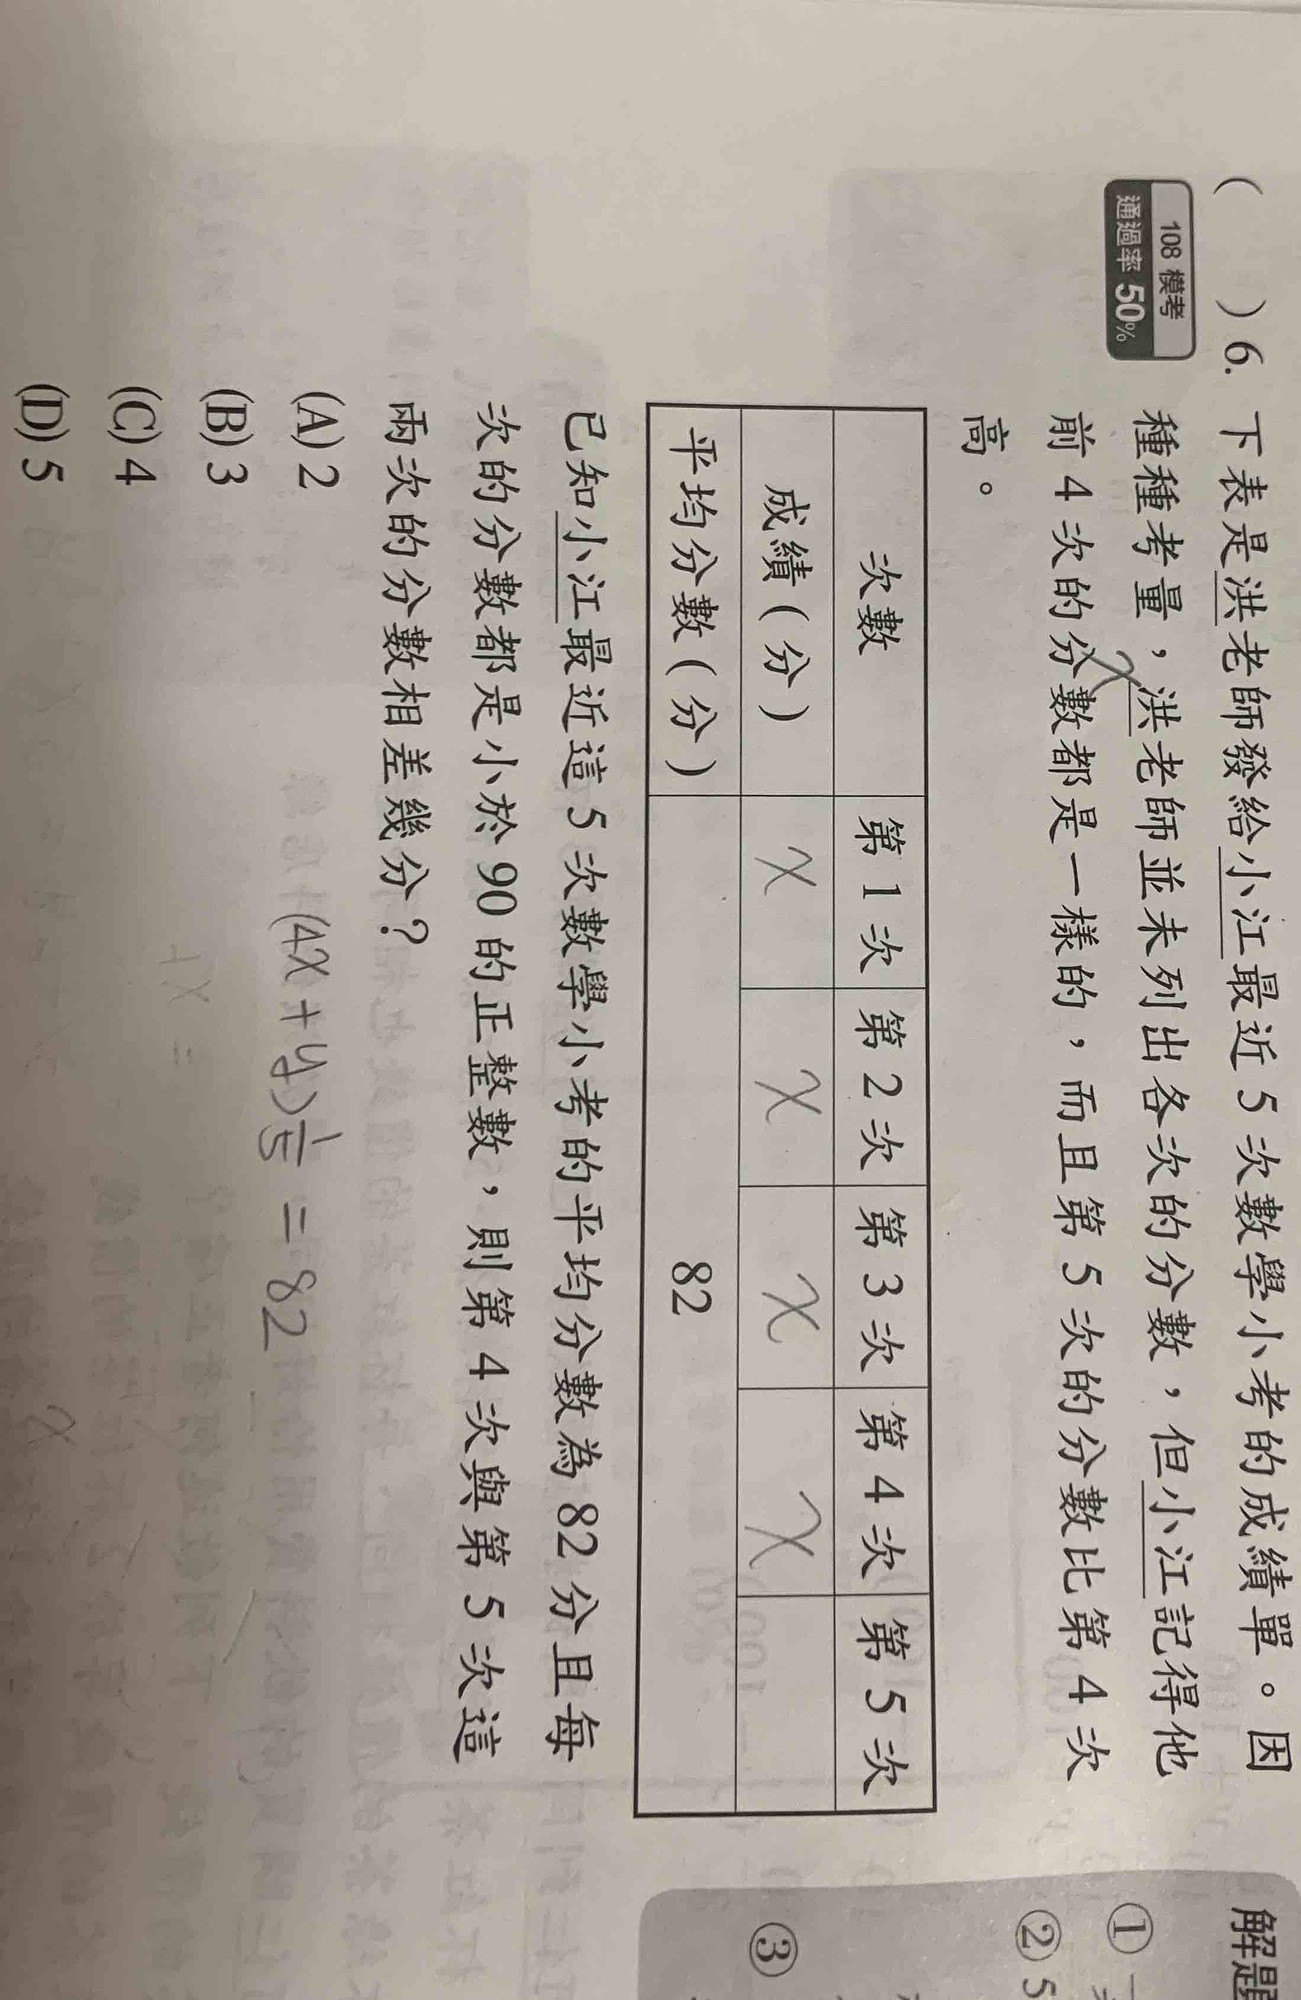 ( ) 6. 下表是洪老師發給小江最近 5 次數學小考的成績單。因
108 模考
通過率 50%
種種考量，洪老師並未列出各次的分數，但小江記得他
前 4 次的分數都是一樣的，而且第 5 次的分數比第 4 次
高。
x
次數 第 1 次 第 2 次 第 3 次 第 4 次 第 5 次
成績（分） x x x x
平均分數（分） 82
已知小江最近這 5 次數學小考的平均分數為 82 分且每
次的分數都是小於 90 的正整數，則第 4 次與第 5 次這
兩次的分數相差幾分？
(A) 2
(4x+y)1/5 = 82
(B) 3
(C) 4
(D) 5
解題
①
② 5
③